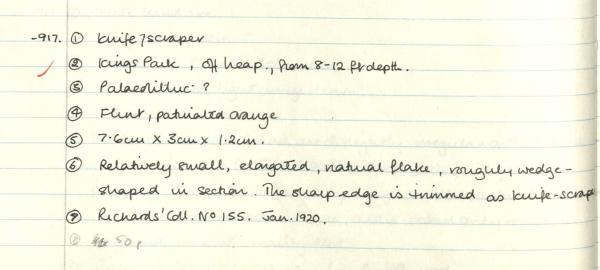 -917. ① Knife/scraper
② Kings Park, off heap, from 8-12 ft depth.
③ Palaeolithic ?
④ Flint, patinated orange
⑤ 7.6cm X 3cm x 1.2cm.
⑥ Relatively small, elongated, natural flake, roughly wedge-
shaped in section. The sharp edge is trimmed as knife-scrap
⑦ Richards' Coll. No 155. Jan. 1920.
50